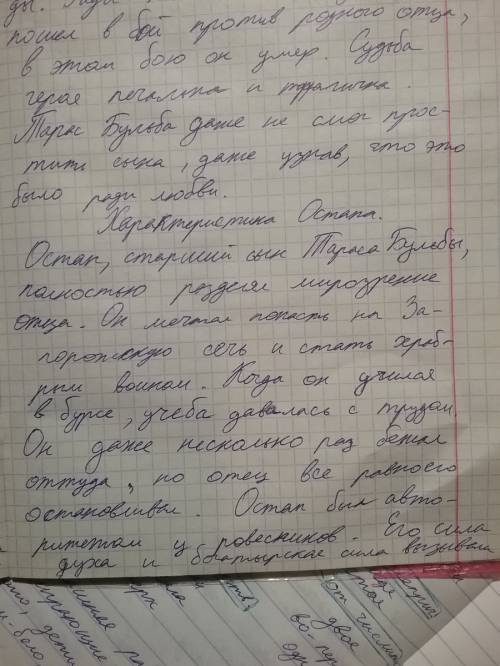 ды. Ради
пошел в бой против родного отца,
в этом бою он умер. Судьба
героя печальна и трагична.
Тарас Бульба даже не смог прос-
тить сына, даже узнав, что это
было ради любви.
Характеристика Остапа.
Остап, старший сын Тараса Бульбы,
полностью разделял мирозрение
отца. Он мечтал попасть на За-
порожскую сечь и стать храб-
рым воином. Когда он учился
в бурсе, учеба давалась с трудом.
Он даже несколько раз бежал
оттуда, но отец все равно его
остановливал. Остап был авто-
ритетом у ровестников. Его сила
духа и богатырская сила вызывала